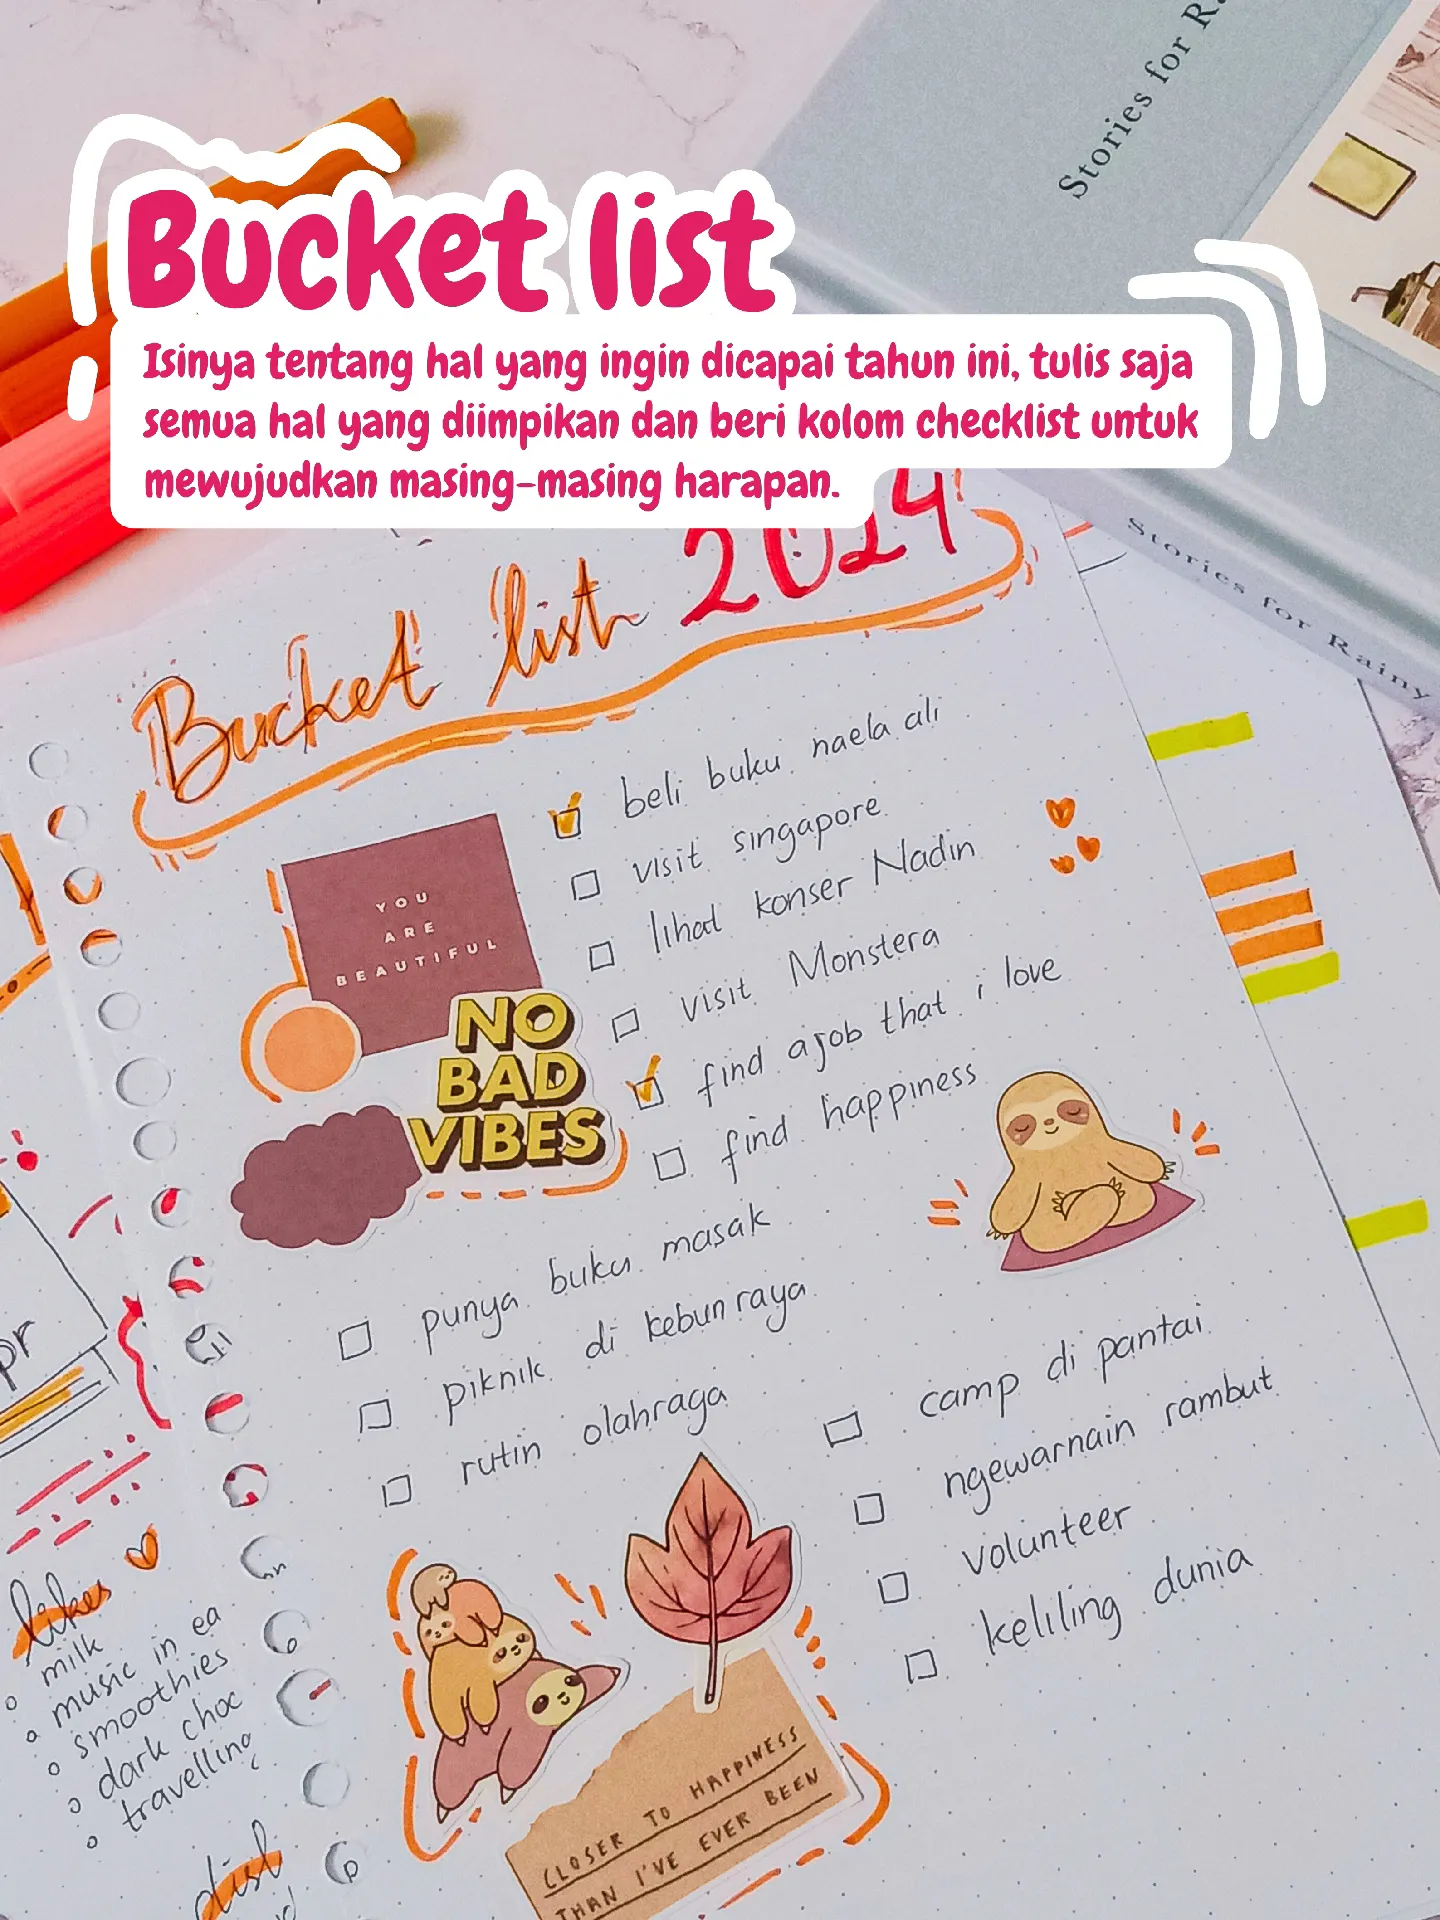 Stories for
Bucket list
Isinya tentang hal yang ingin dicapai tahun ini, tulis saja
semua hal yang diimpikan dan beri kolom checklist untuk
mewujudkan masing-masing harapan.
Stories for Rainy
Bucket list 2024
beli buku naela ali
visit singapore
lihat konser Nadin
visit Monstera
find a job that i love
find happiness
YOU
ARE
BEAUTIFUL
NO
BAD
VIBES
punya buku masak
piknik di kebun raya
rutin olahraga
camp di pantai
ngewarnain rambut
volunteer
keliling dunia
likes
milk
music in ea
smoothies
dark choc
travelling
CLOSER TO HAPPINESS
THAN I'VE EVER BEEN